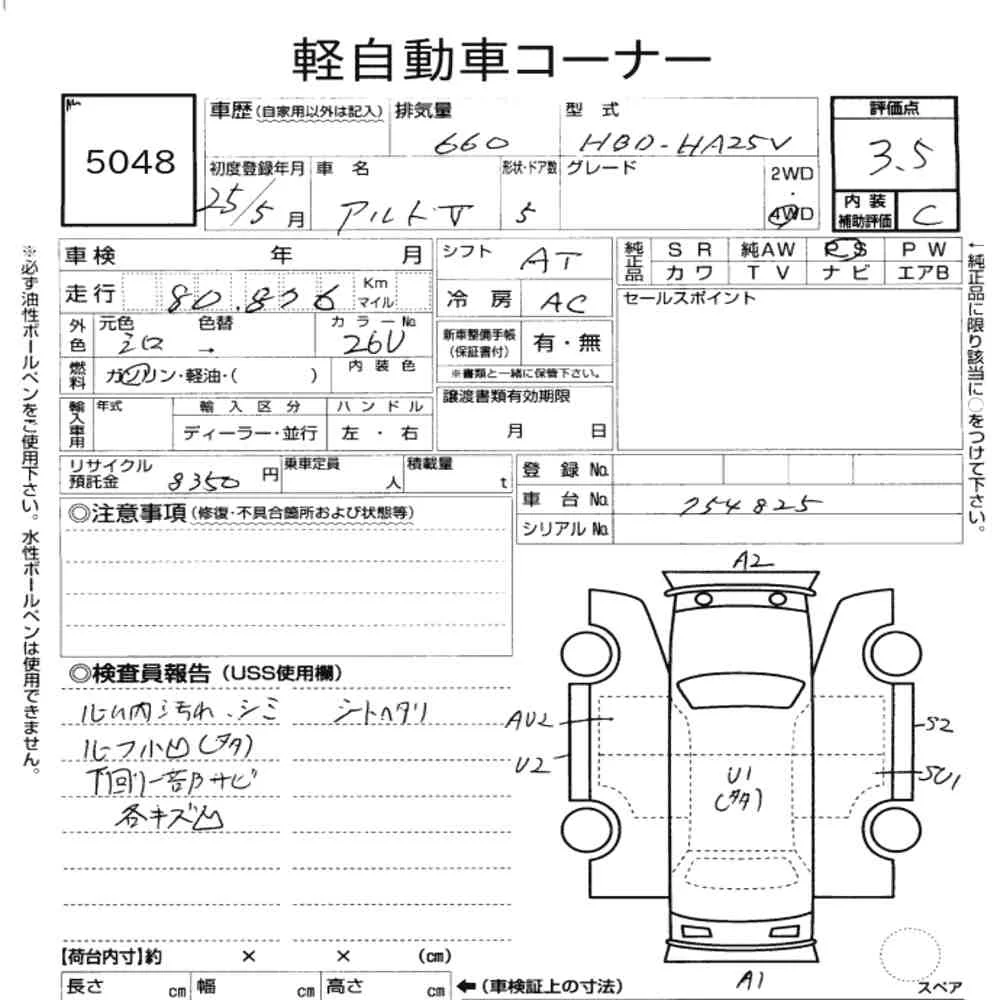 軽自動車コーナー
5048
車歴(自家用以外は記入) 排気量 型式 評価点
660 HBD-HA25V 3.5
初度登録年月 車名 形状・ドア数 グレード 2WD・4WD
25/5月 アルトV 5
内装補助評価 C
車検 年 月
走行 80,876 Km マイル
外色 元色 シロ 色替 → カラーNo. 26U
燃料 ガソリン・軽油・( ) 内装色
輸入車用 年式 輸入区分 ハンドル
ディーラー・並行 左・右
シフト AT
冷房 AC
新車整備手帳(保証書付) 有・無
※書類と一緒に保管下さい。
譲渡書類有効期限
月 日
純正品 SR 純AW PS PW
カワ TV ナビ エアB
セールスポイント
←純正品に限り該当に○をつけて下さい。
※必ず油性ボールペンをご使用下さい。水性ボールペンは使用できません。
リサイクル預託金 8350円 乗車定員 人 積載量 t
登録No.
車台No. 754825
シリアルNo.
◎注意事項(修復・不具合箇所および状態等)
◎検査員報告(USS使用欄)
ルーム内汚れ、シミ シートヘタリ
ルーフ小凹(タタ)
下回り一部サビ
各キズ凹
A2
AU2
U2
S2
SU1
U1
(タタ)
A1
スペア
【荷台内寸】約 × × (cm)
長さ cm 幅 cm 高さ cm ←(車検証上の寸法)